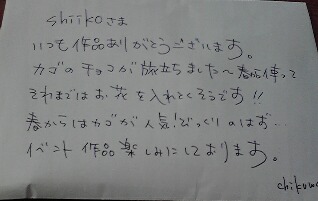 shiikoさま
いつも作品ありがとうございます。
カゴのチョコが旅立ちました〜春に使って
それまではお花を入れとくそうです!!
春からはカゴが人気!びっくりのはず…
イベント作品楽しみにしております。
chikuwa